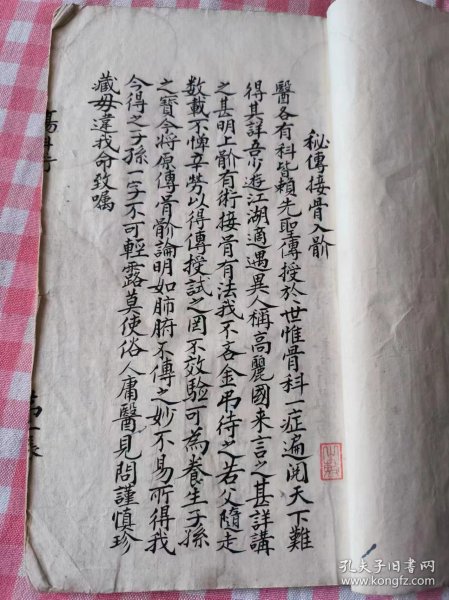 秘傳接骨入骱
醫各有科皆賴先聖傳授於世惟骨科一症遍閱天下難
得其詳吾少遊江湖適遇異人稱高麗國来言之甚詳講
之甚明上骱有術接骨有法我不吝金帛待之若父隨走
数載不憚辛勞以得傳授試之罔不效驗可為養生子孫
之寳今將原傳骨骱論明如肺腑不傳之妙不易所得我
今得之子孫一字不可輕露莫使俗人庸醫見問謹慎珍
藏毋違我命致嘱
孔夫子旧書网
www.kongfz.com